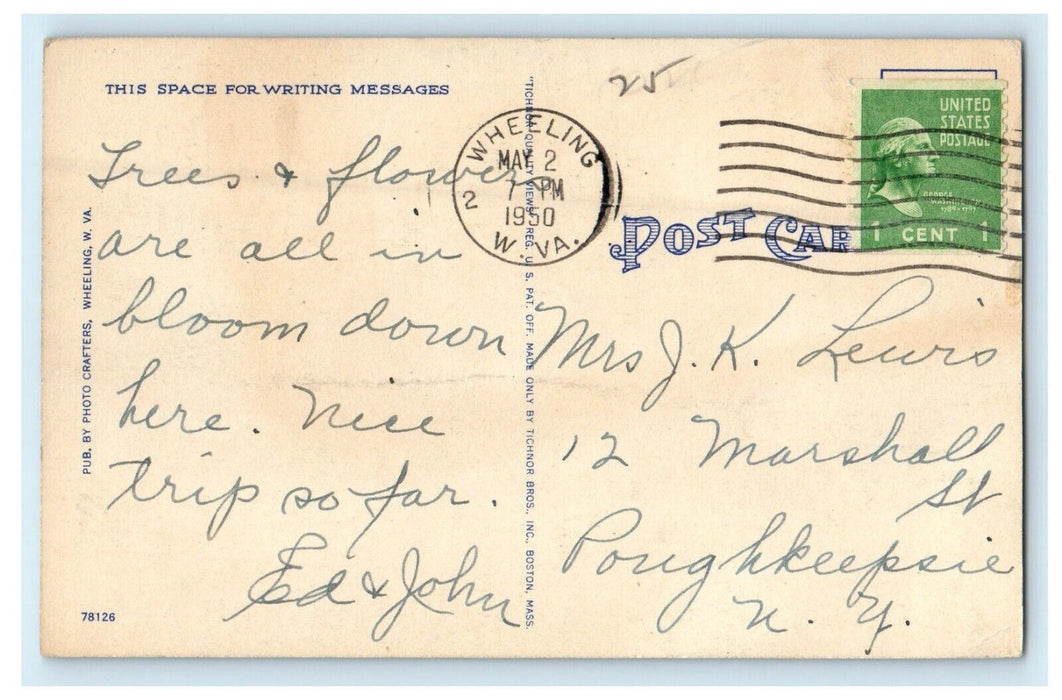 THIS SPACE FOR WRITING MESSAGES
Trees & flowers
are all in
bloom down
here. Nice
trip so far.
Ed & John
PUB. BY PHOTO CRAFTERS, WHEELING, W. VA.
78126
"TICHNOR QUALITY VIEWS" REG. U. S. PAT. OFF. MADE ONLY BY TICHNOR BROS., INC., BOSTON, MASS.
25
WHEELING
MAY 2
7 PM
1950
2
W. VA.
POST CAR
UNITED
STATES
POSTAGE
GEORGE
WASHINGTON
1789-1797
1 CENT 1
Mrs J. K. Lewis
12 Marshall
St
Poughkeepsie
N. Y.